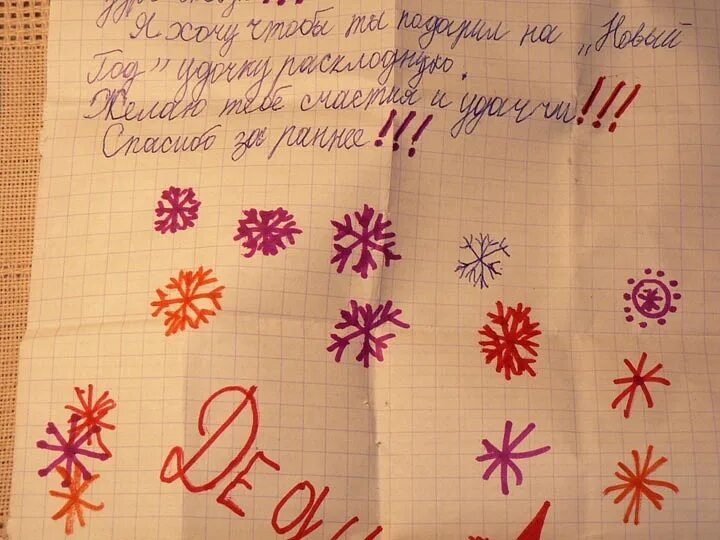 Я хочу чтобы ты подарил на „Новый
Год" удочку раскладную.
Желаю тебе счастия и удаччи!!!
Спасибо за раннее!!!
ДЕ